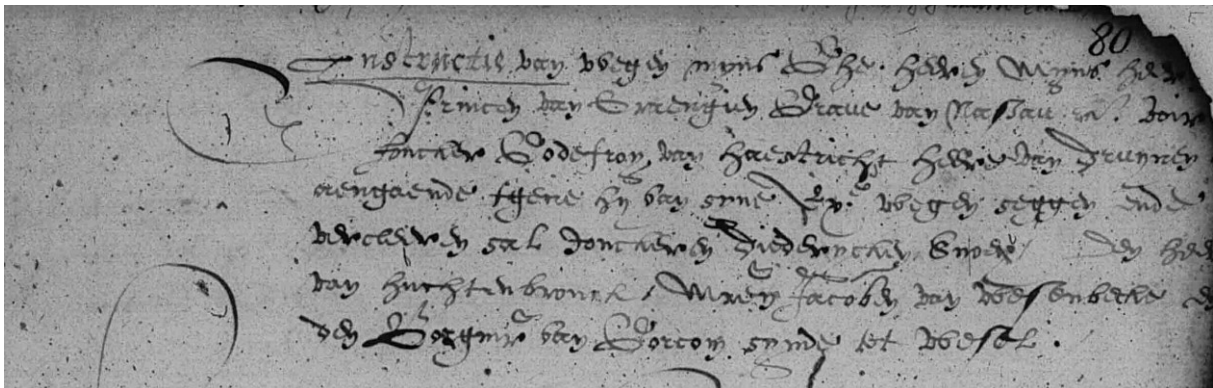 80
Instructie van wegen myns Ghe. heeren Myns heer
Princen van Oraengien Grave van Nassau etc. voir
Joncker Godefroy van Haestricht heere van Druynen
aengaende tgene hy van syne Exc. wegen seggen ende
vercleeren sal Jonckeren Diederycken Snoey den heer
van Huchtenbrouck, Mren Jacoben van Wesenbeke
den Borgmr van Gorcom synde tot Wesel.